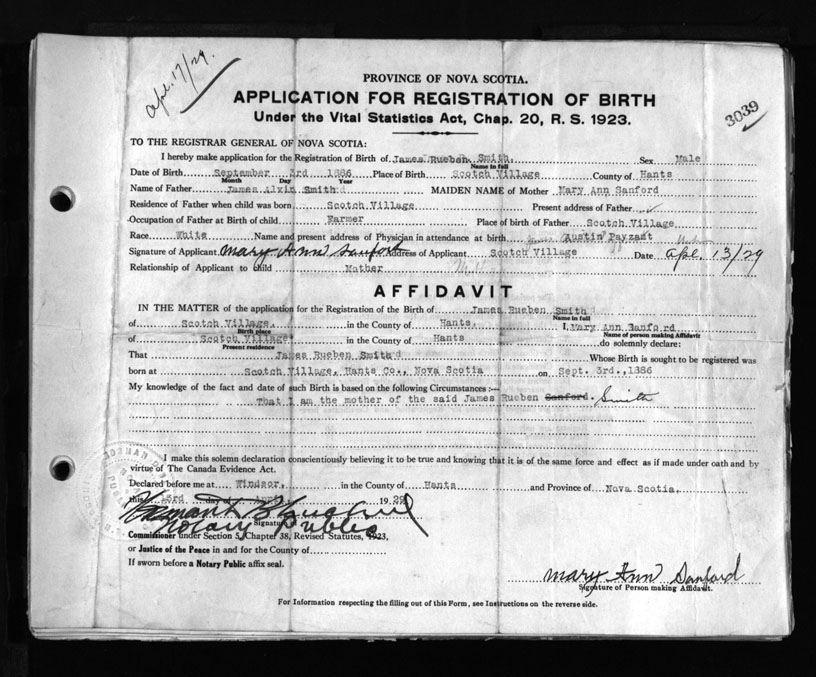 Apl. 17/29.
3039
PROVINCE OF NOVA SCOTIA.
APPLICATION FOR REGISTRATION OF BIRTH
Under the Vital Statistics Act, Chap. 20, R. S. 1923.
TO THE REGISTRAR GENERAL OF NOVA SCOTIA:
I hereby make application for the Registration of Birth of James Rueben Smith. Sex Male
Name in full
Date of Birth September 3rd 1886 Place of Birth Scotch Village County of Hants
Month Day Year
Name of Father James Alvin Smith MAIDEN NAME of Mother Mary Ann Sanford
Residence of Father when child was born Scotch Village Present address of Father
Occupation of Father at Birth of child Farmer Place of birth of Father Scotch Village
Race White Name and present address of Physician in attendance at birth Austin Payzant
Signature of Applicant Mary Ann Sanford Address of Applicant Scotch Village Date Apl. 13/29
Relationship of Applicant to child Mother
AFFIDAVIT
IN THE MATTER of the application for the Registration of the Birth of James Rueben Smith
Name in full
of Scotch Village. in the County of Hants. I, Mary Ann Sanford
Birth place Name of person making Affidavit
of Scotch Village in the County of Hants do solemnly declare:
Present residence
That James Rueben Smith Whose Birth is sought to be registered was
born at Scotch Village, Hants Co., Nova Scotia on Sept. 3rd., 1886
My knowledge of the fact and date of such Birth is based on the following Circumstances :—
That I am the mother of the said James Rueben Sanford. Smith
I make this solemn declaration conscientiously believing it to be true and knowing that it is of the same force and effect as if made under oath and by
virtue of The Canada Evidence Act.
Declared before me at Windsor, in the County of Hants and Province of Nova Scotia.
this day of April, 1929
Notary Public
Signature
Commissioner under Section 5, Chapter 38, Revised Statutes, 1923,
or Justice of the Peace in and for the County of
If sworn before a Notary Public affix seal.
Mary Ann Sanford
Signature of Person making Affidavit.
For Information respecting the filling out of this Form, see Instructions on the reverse side.